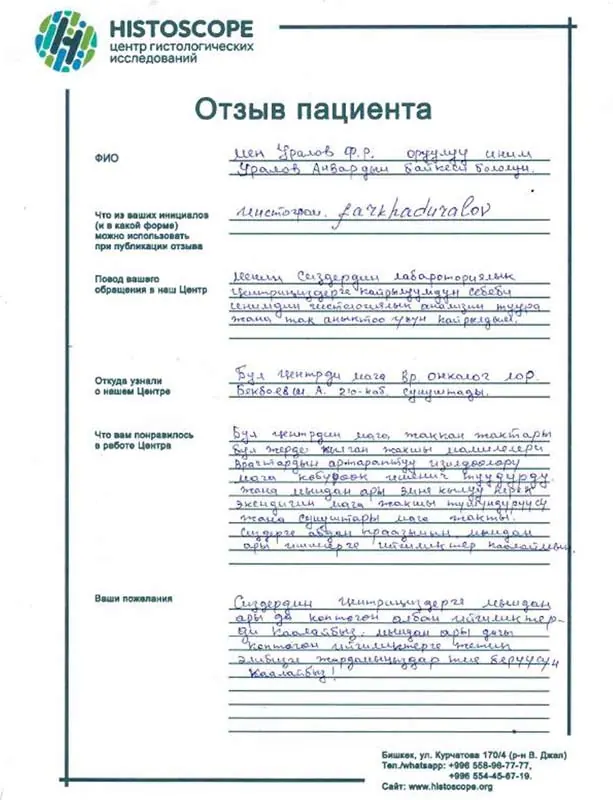 HISTOSCOPE
центр гистологических
исследований
Отзыв пациента
ФИО
Мен Уралов Ф.Р. оруулуу иним
Уралов Анвардын байкеси боломун.
Что из ваших инициалов
(и в какой форме)
можно использовать
при публикации отзыва
инстограм. farkhaduralov
Повод вашего
обращения в наш Центр
Менин Сиздердин лабороториялык
центринциздерге кайрылуумдун себеби
инимдин гистологиялык анализин туура
жана так аныктоо учун кайрылдым.
Откуда узнали
о нашем Центре
Бул центрди мага вр онколог лор.
Бекбоев М. А. 210-каб. сунуштады.
Что вам понравилось
в работе Центра
Бул центрдин мага жаккан жактары
Бул жерде кылган жакшы мамилелери
врачтардын ар тараптуу изилдоолору
мага кобуроок ишенич туудурду
жана мындан ары эмне кылуу керек
экендигин мага жакшы тушундуруусу
жана сунуштары мага жакты.
Сиздерге абдан ыраазымын. мындан
ары ишинерге ийгиликтер каалаймын.
Ваши пожелания
Сиздердин центринциздерге мындан
ары да коптогон албан ийгиликтер-
ди каалайбыз. мындан ары дагы
коптогон ийгиликтерге жетип
элибизге жардамыңыздар тие беруусун
каалайбыз!
Бишкек, ул. Курчатова 170/4 (р-н В. Джал)
Тел./whatsapp: +996 558-96-77-77,
+996 554-45-67-19.
Сайт: www.histoscope.org